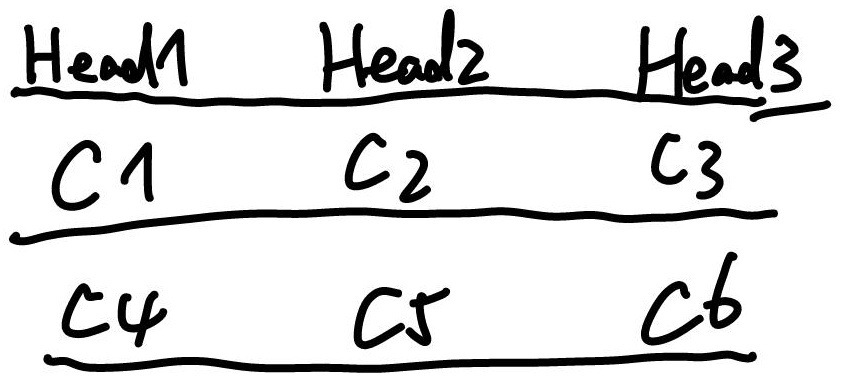 Head1 Head2 Head3
C1 C2 C3
C4 C5 C6